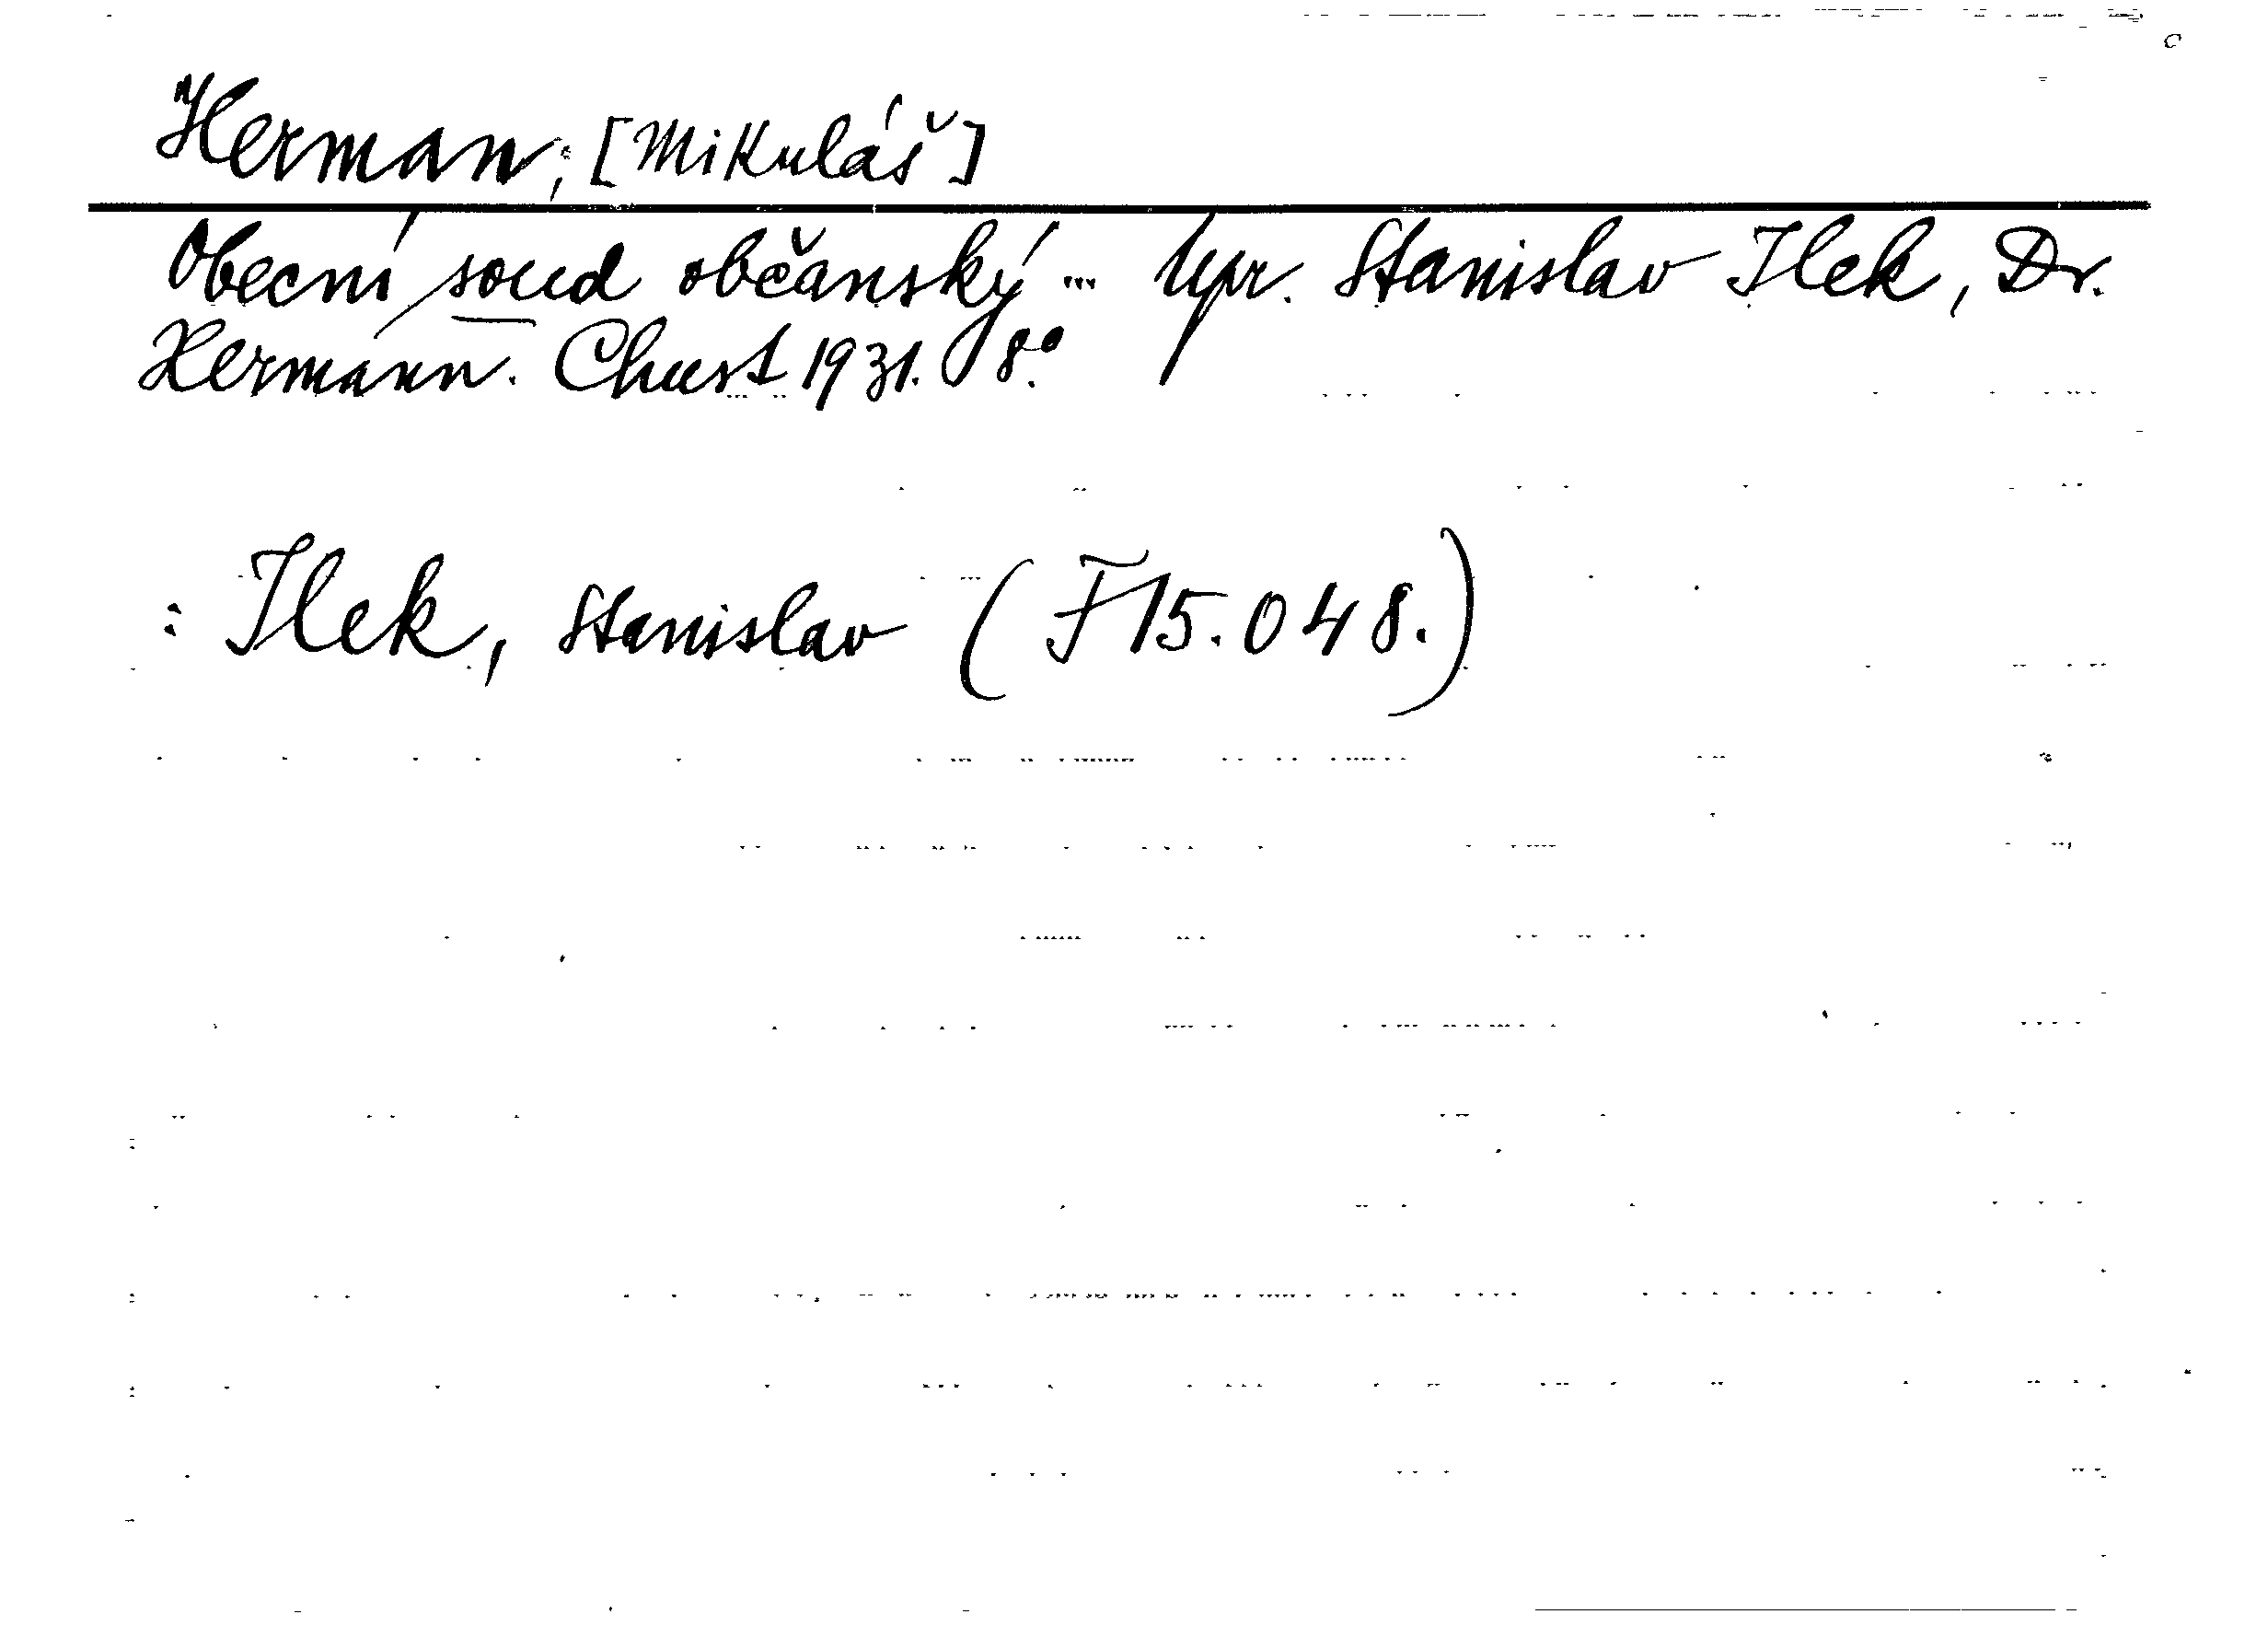 Herman, [Mikuláš]
Obecní soud občanský ... Upr. Stanislav Ilek, Dr.
Hermann. Chust 1931. 8°.
: Ilek, Stanislav (F 15.048.)